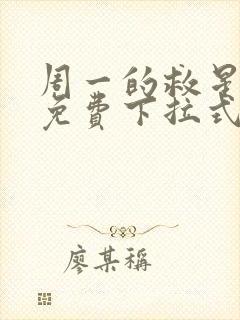 周一的救星
免費下拉式
廖某稱